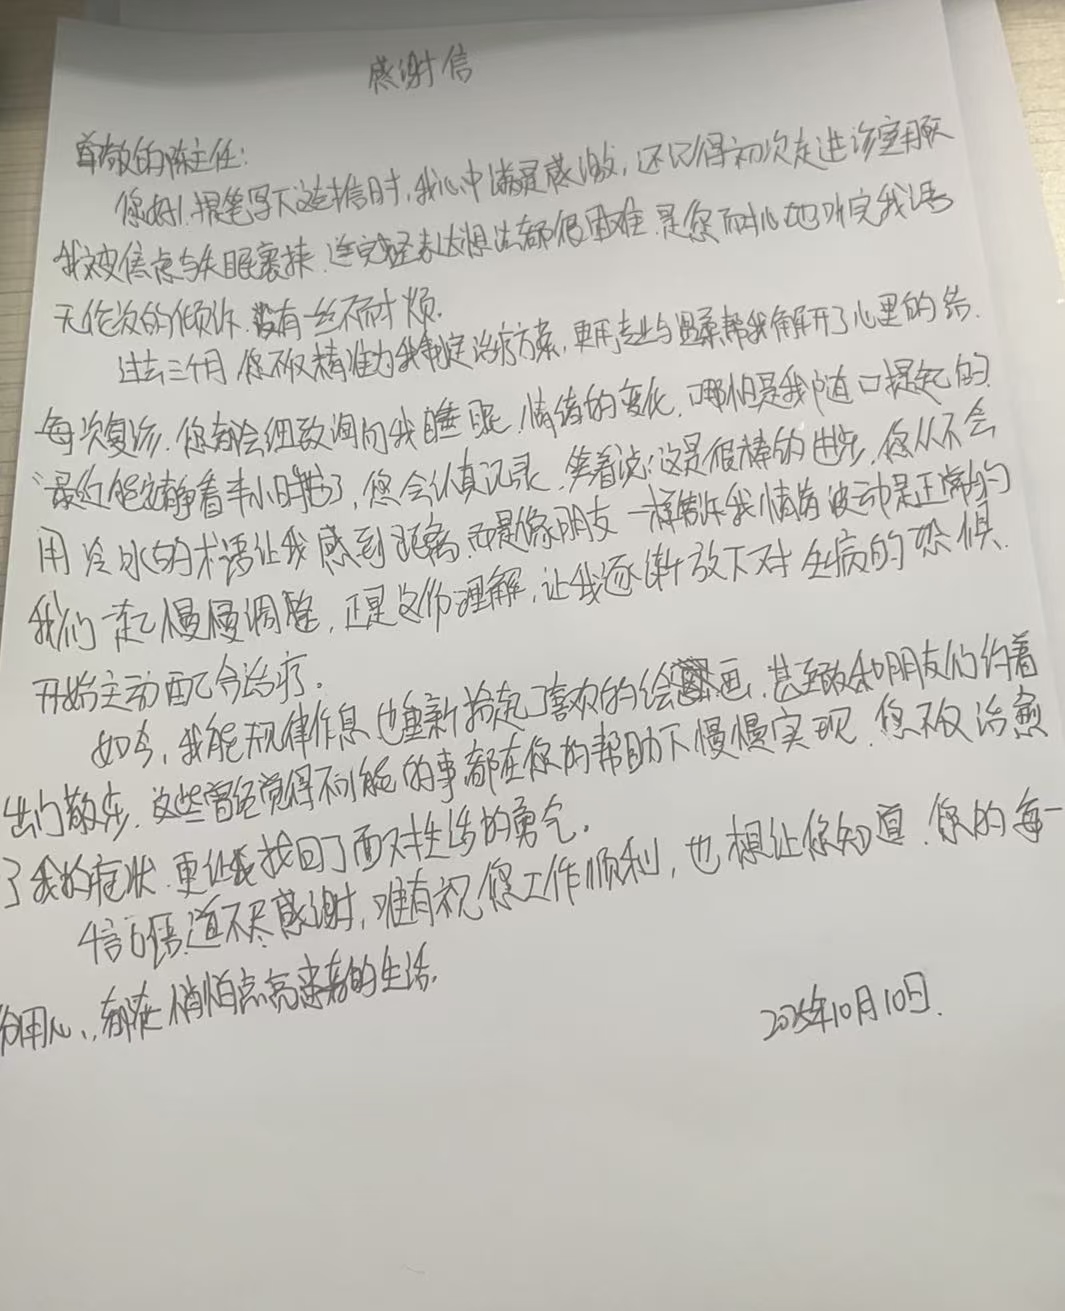 感谢信
尊敬的陈主任:
您好!提笔写下这封信时,我心中满是感激,还记得初次走进诊室那天
我被焦虑与失眠裹挟,连完整表达想法都很困难,是您耐心地听完我语
无伦次的倾诉,没有一丝不耐烦.
过去三个月,您不仅精准为我制定治疗方案,更用专业与温柔帮我解开了心里的结.
每次复诊,您都会细致询问我睡眠、情绪的变化,哪怕是我随口提起的
“最近能安静看半小时书了,您会认真记录,笑着说:这是很棒的进步,您从不会
用冷冰的术语让我感到距离,而是像朋友一样告诉我情绪波动是正常的
我们一起慢慢调整,正是这份理解,让我逐渐放下对生病的恐惧.
开始主动配合治疗.
如今,我能规律作息,也重新拾起了喜欢的绘画,甚至敢和朋友们约着
出门散步,这些曾经觉得不可能的事都在您的帮助下慢慢实现,您不仅治愈
了我的症状,更让我找回了面对生活的勇气.
千言万语道不尽感谢,唯有祝您工作顺利,也想让您知道,您的每一
份用心,都在悄悄点亮患者的生活.
2025年10月10日.